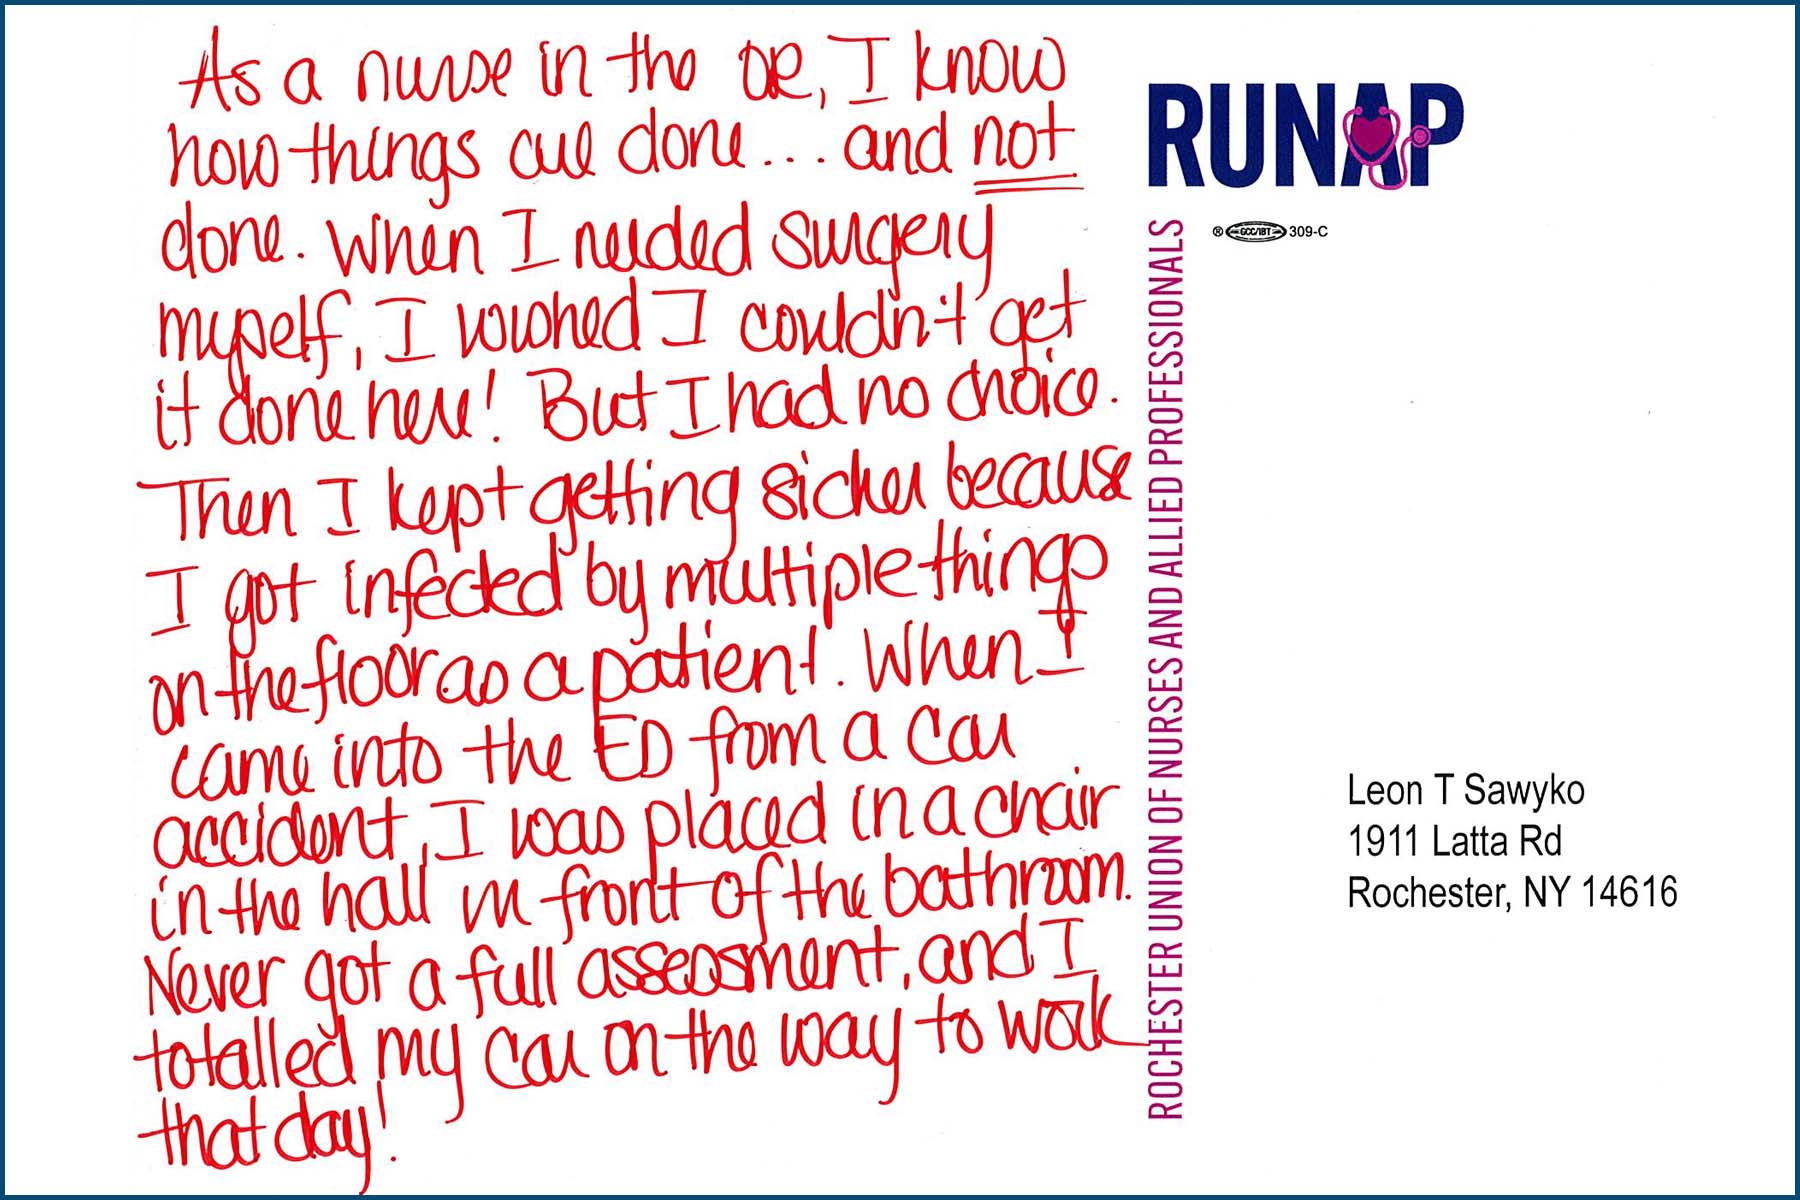 As a nurse in the OR, I know
how things are done... and not
done. When I needed surgery
myself, I wished I couldn't get
it done here! But I had no choice.
Then I kept getting sicker because
I got infected by multiple things
on the floor as a patient. When I
came into the ED from a car
accident, I was placed in a chair
in the hall in front of the bathroom.
Never got a full assessment, and I
totalled my car on the way to work
that day!
RUNAP
® GCC/IBT 309-C
ROCHESTER UNION OF NURSES AND ALLIED PROFESSIONALS
Leon T Sawyko
1911 Latta Rd
Rochester, NY 14616